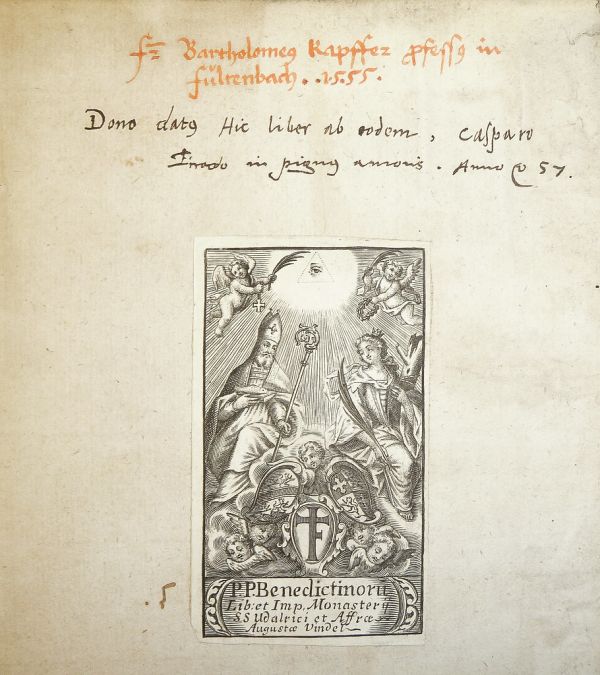 fr Bartholomeꝰ Kapffer ꝓfessꝰ in
fültenbach . . 1555.
Dono datꝰ Hic liber ab eodem, Casparo
in pignꝰ amoris . Anno 57.
P.P. Benedictinorū
Lib: et Imp. Monasterij
SS Udalrici et Affræ
Augustæ Vindel
5